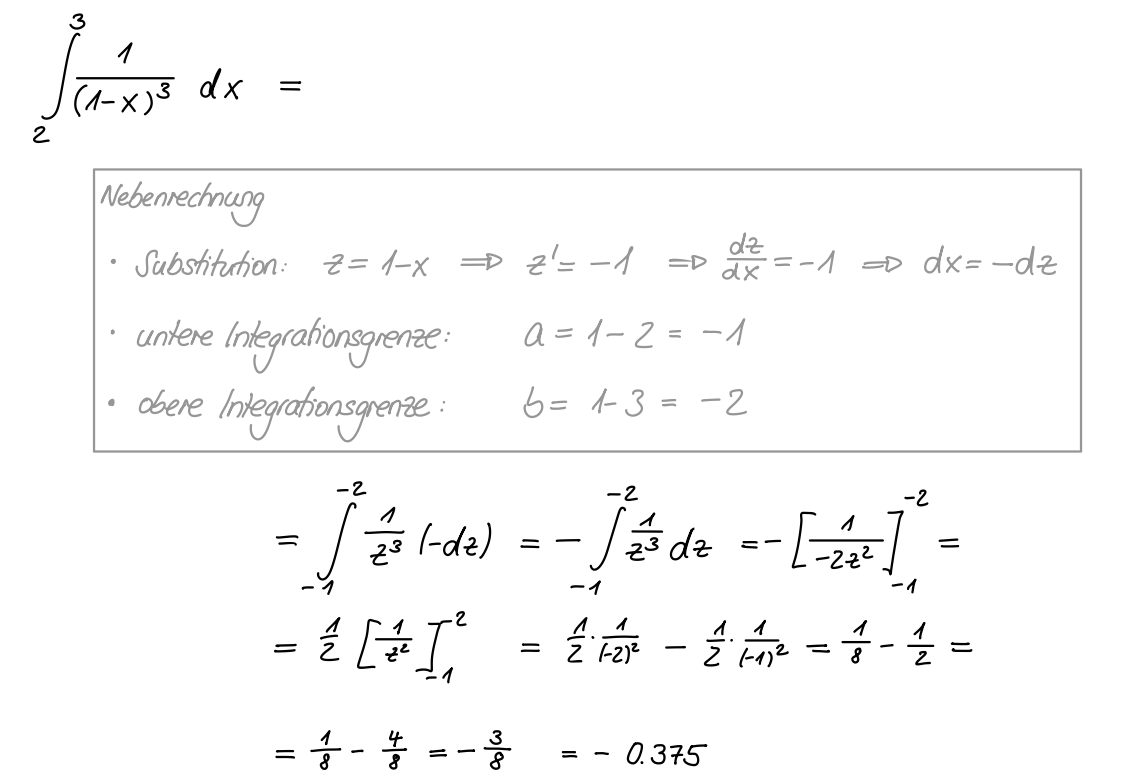 ∫₂³ 1/(1-x)³ dx =
Nebenrechnung
• Substitution: z = 1-x ⟹ z' = -1 ⟹ dz/dx = -1 ⟹ dx = -dz
• untere Integrationsgrenze: a = 1-2 = -1
• obere Integrationsgrenze: b = 1-3 = -2
= ∫₋₁⁻² 1/z³ (-dz) = - ∫₋₁⁻² 1/z³ dz = - [1/(-2z²)]₋₁⁻² =
= 1/2 [1/z²]₋₁⁻² = 1/2 · 1/(-2)² - 1/2 · 1/(-1)² = 1/8 - 1/2 =
= 1/8 - 4/8 = - 3/8 = - 0.375